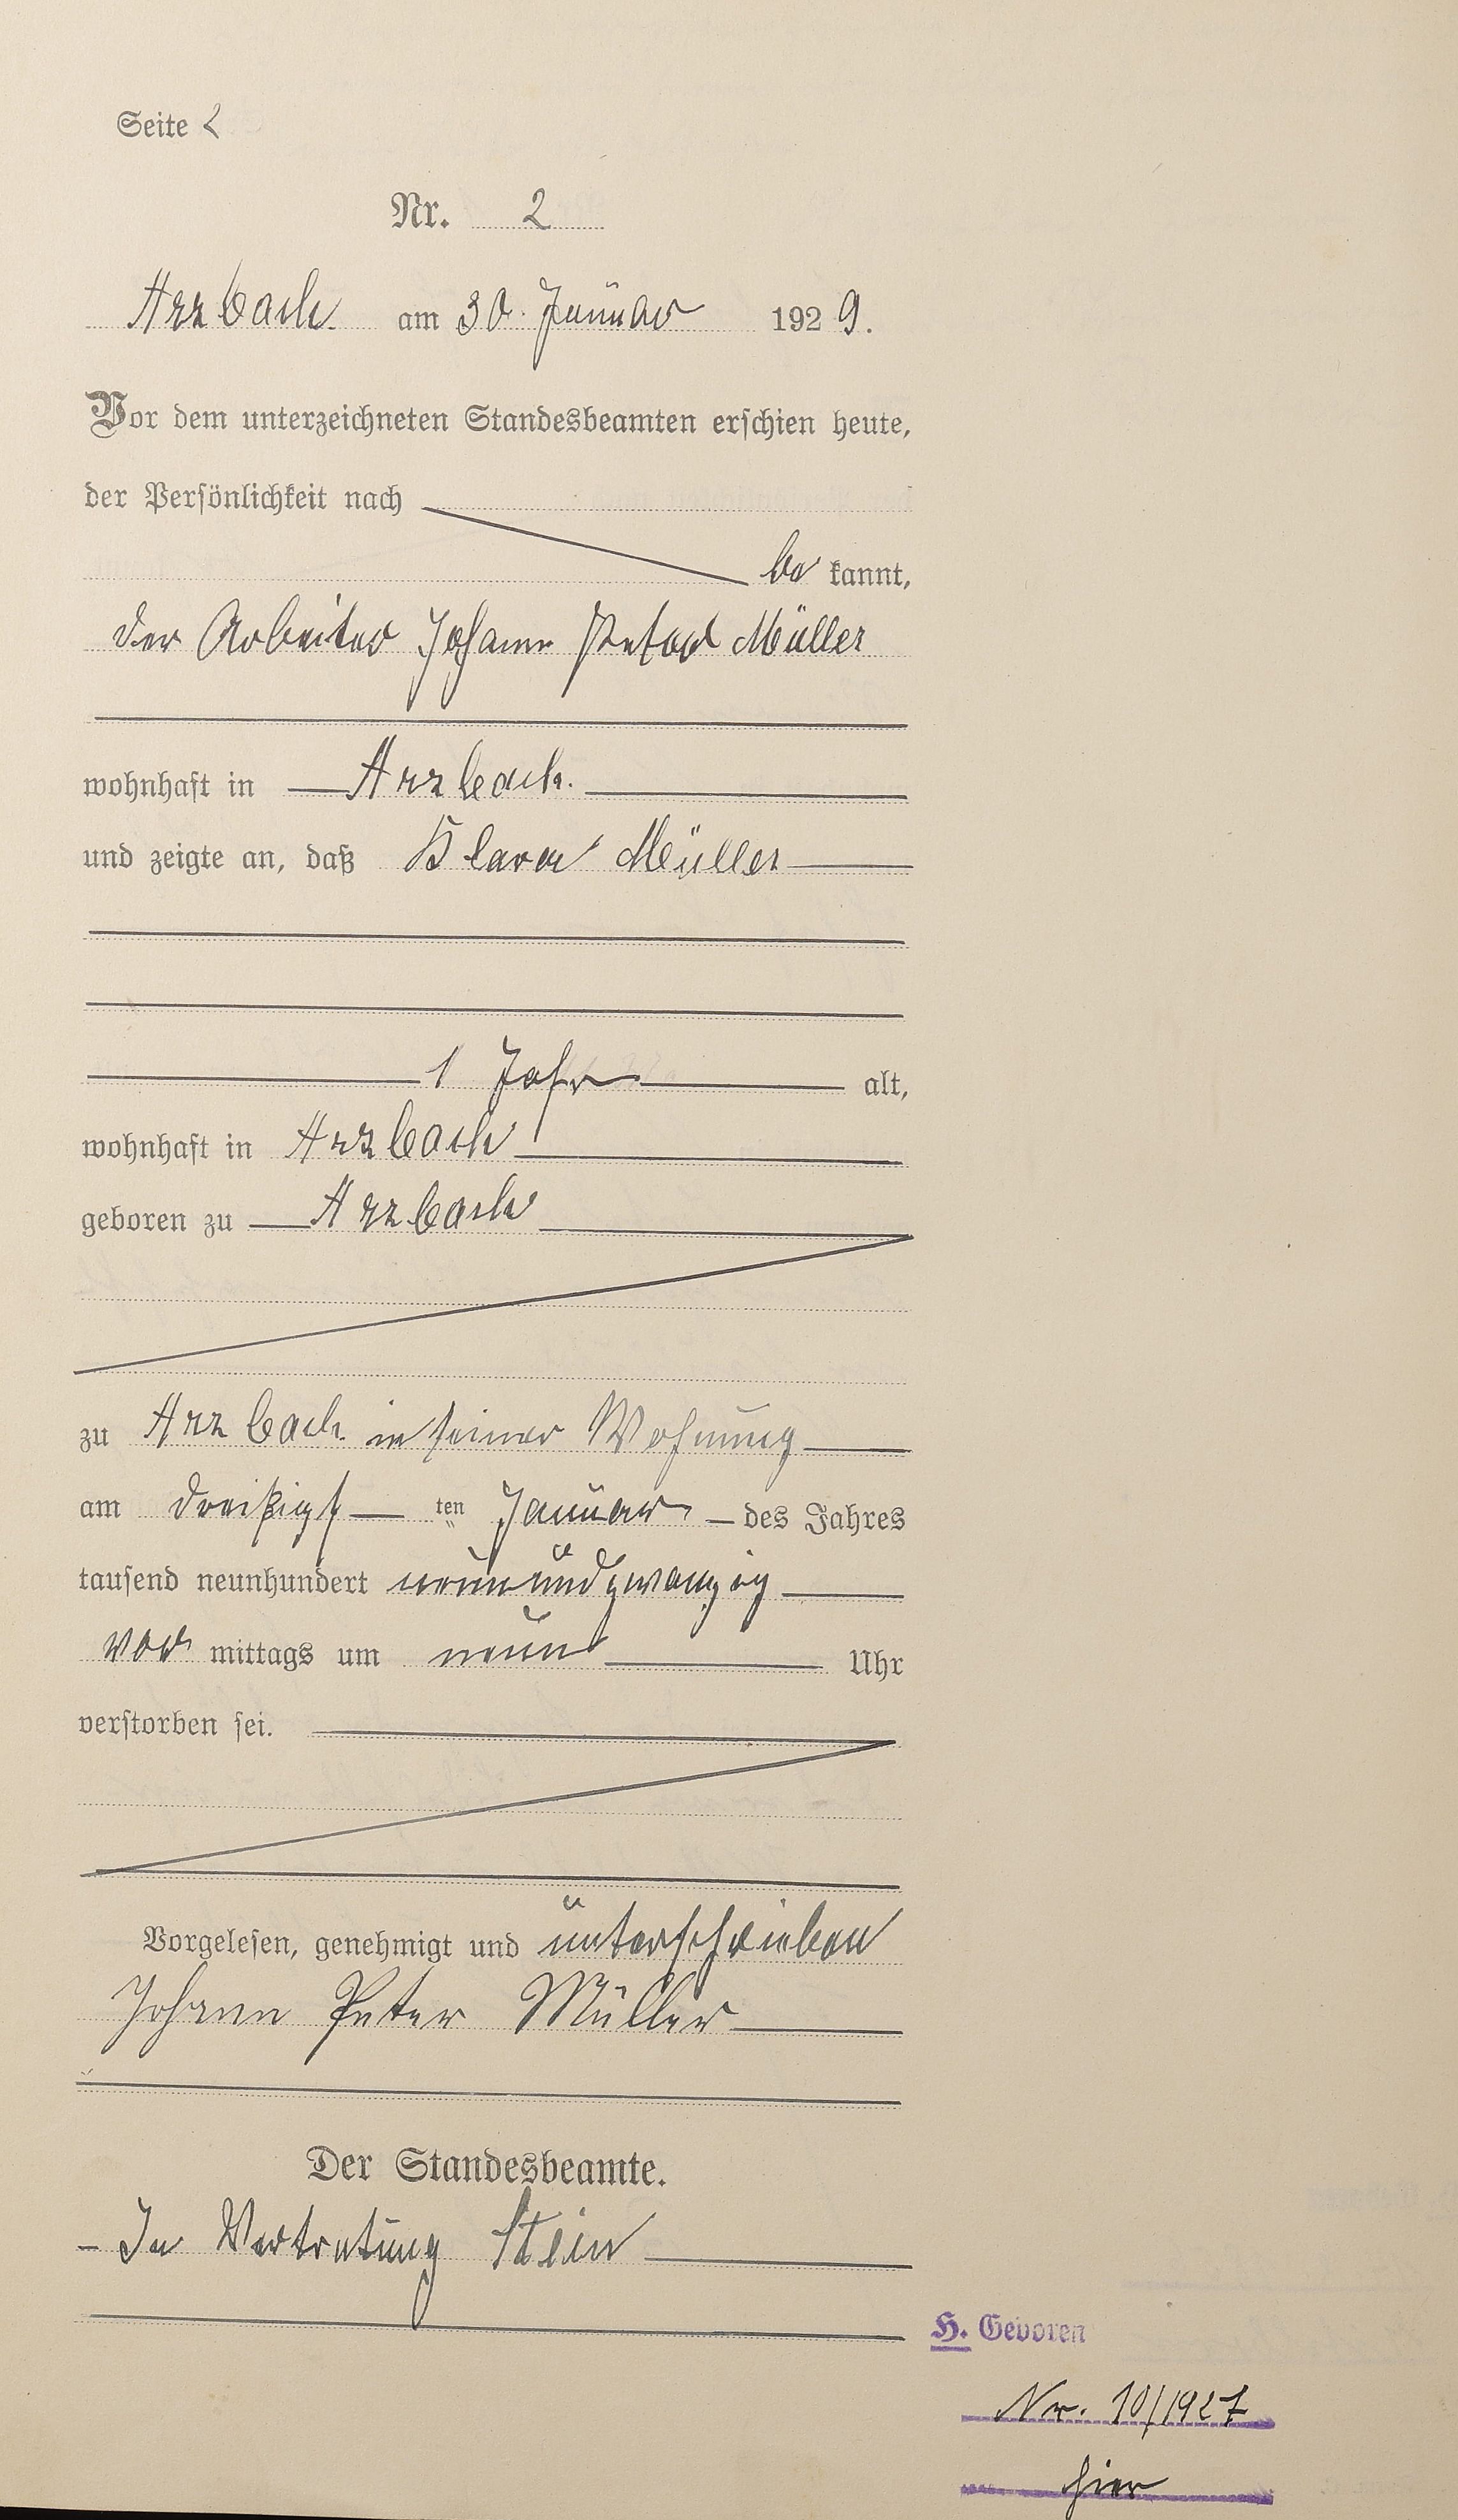 Seite 2
Nr. 2
Arzbach am 30. Januar 1929.
Vor dem unterzeichneten Standesbeamten erschien heute,
der Persönlichkeit nach
bekannt,
der Arbeiter Johann Peter Müller
wohnhaft in Arzbach.
und zeigte an, daß Klara Müller
1 Jahr alt,
wohnhaft in Arzbach
geboren zu Arzbach
zu Arzbach in seiner Wohnung
am dreißigsten Januar des Jahres
tausend neunhundert neunundzwanzig
vormittags um neun Uhr
verstorben sei.
Vorgelesen, genehmigt und unterschrieben
Johann Peter Müller
Der Standesbeamte.
In Vertretung Stein
H. Geboren
Nr. 10/1927
hier